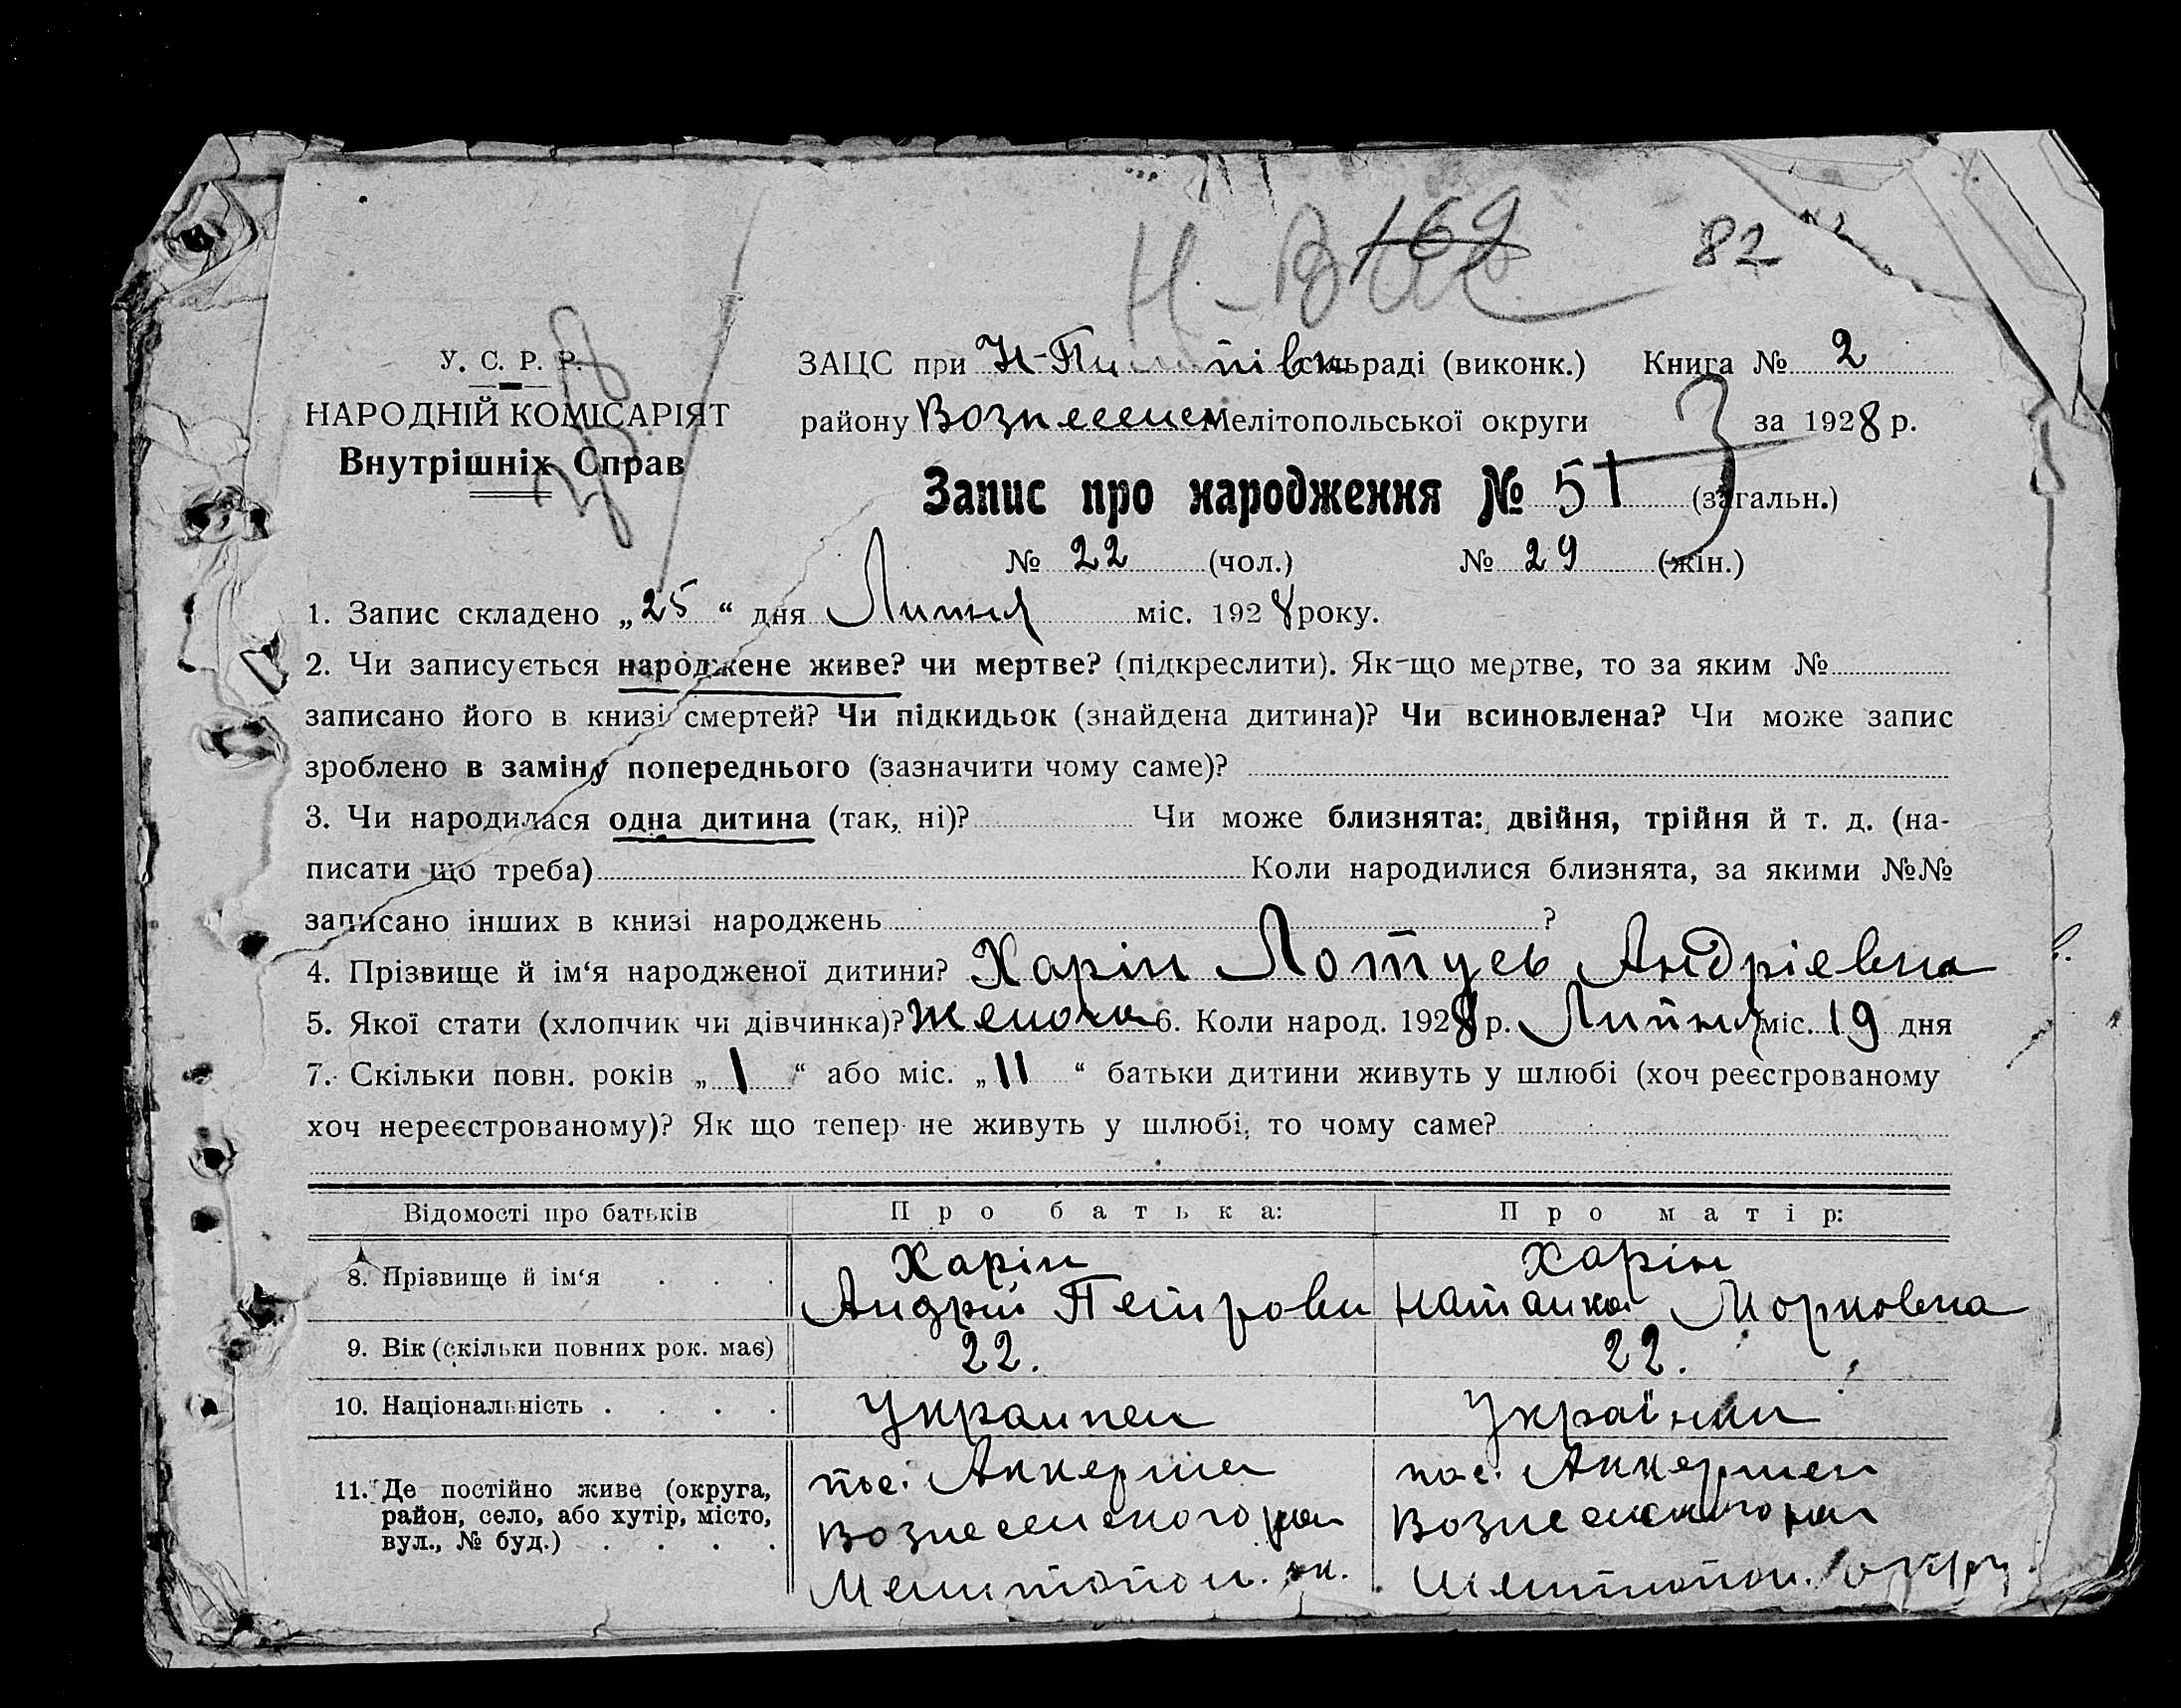 169
82
У. С. Р. Р.
НАРОДНІЙ КОМІСАРІЯТ
Внутрішніх Справ
ЗАЦС при сільраді (виконк.) Книга № 2
району Вознесенск Мелітопольської округи за 1928 р.
Запис про народження № 51 (загальн.)
№ 22 (чол.) № 29 (жін.)
1. Запис складено „25“ дня Липня міс. 1928 року.
2. Чи записується народжене живе? чи мертве? (підкреслити). Як-що мертве, то за яким №
записано його в книзі смертей? Чи підкидьок (знайдена дитина)? Чи всиновлена? Чи може запис
зроблено в заміну попереднього (зазначити чому саме)?
3. Чи народилася одна дитина (так, ні)? Чи може близнята: двійня, трійня й т. д. (на-
писати що треба) Коли народилися близнята, за якими №№
записано інших в книзі народжень ?
4. Прізвище й ім‘я народженої дитини? Харін Андріевна
5. Якої стати (хлопчик чи дівчинка)? 6. Коли народ. 1928 р. Липня міс. 19 дня
7. Скільки повн. років „1“ або міс. „11“ батьки дитини живуть у шлюбі (хоч реєстрованому
хоч нереєстрованому)? Як що тепер не живуть у шлюбі, то чому саме?
Відомості про батьків Про батька: Про матір:
8. Прізвище й ім‘я . . . Харін Харін
Андрій Петрови Наталка Марковна
9. Вік (скільки повних рок. має) 22. 22.
10. Національність . . . . Украинец Українки
11. Де постійно живе (округа,
район, село, або хутір, місто,
вул., № буд.) . . . .
пос. Аккермен пос. Аккермен
Вознесенского рай Вознесенского рай
Мелитопол. ок. Мелитопол. окру